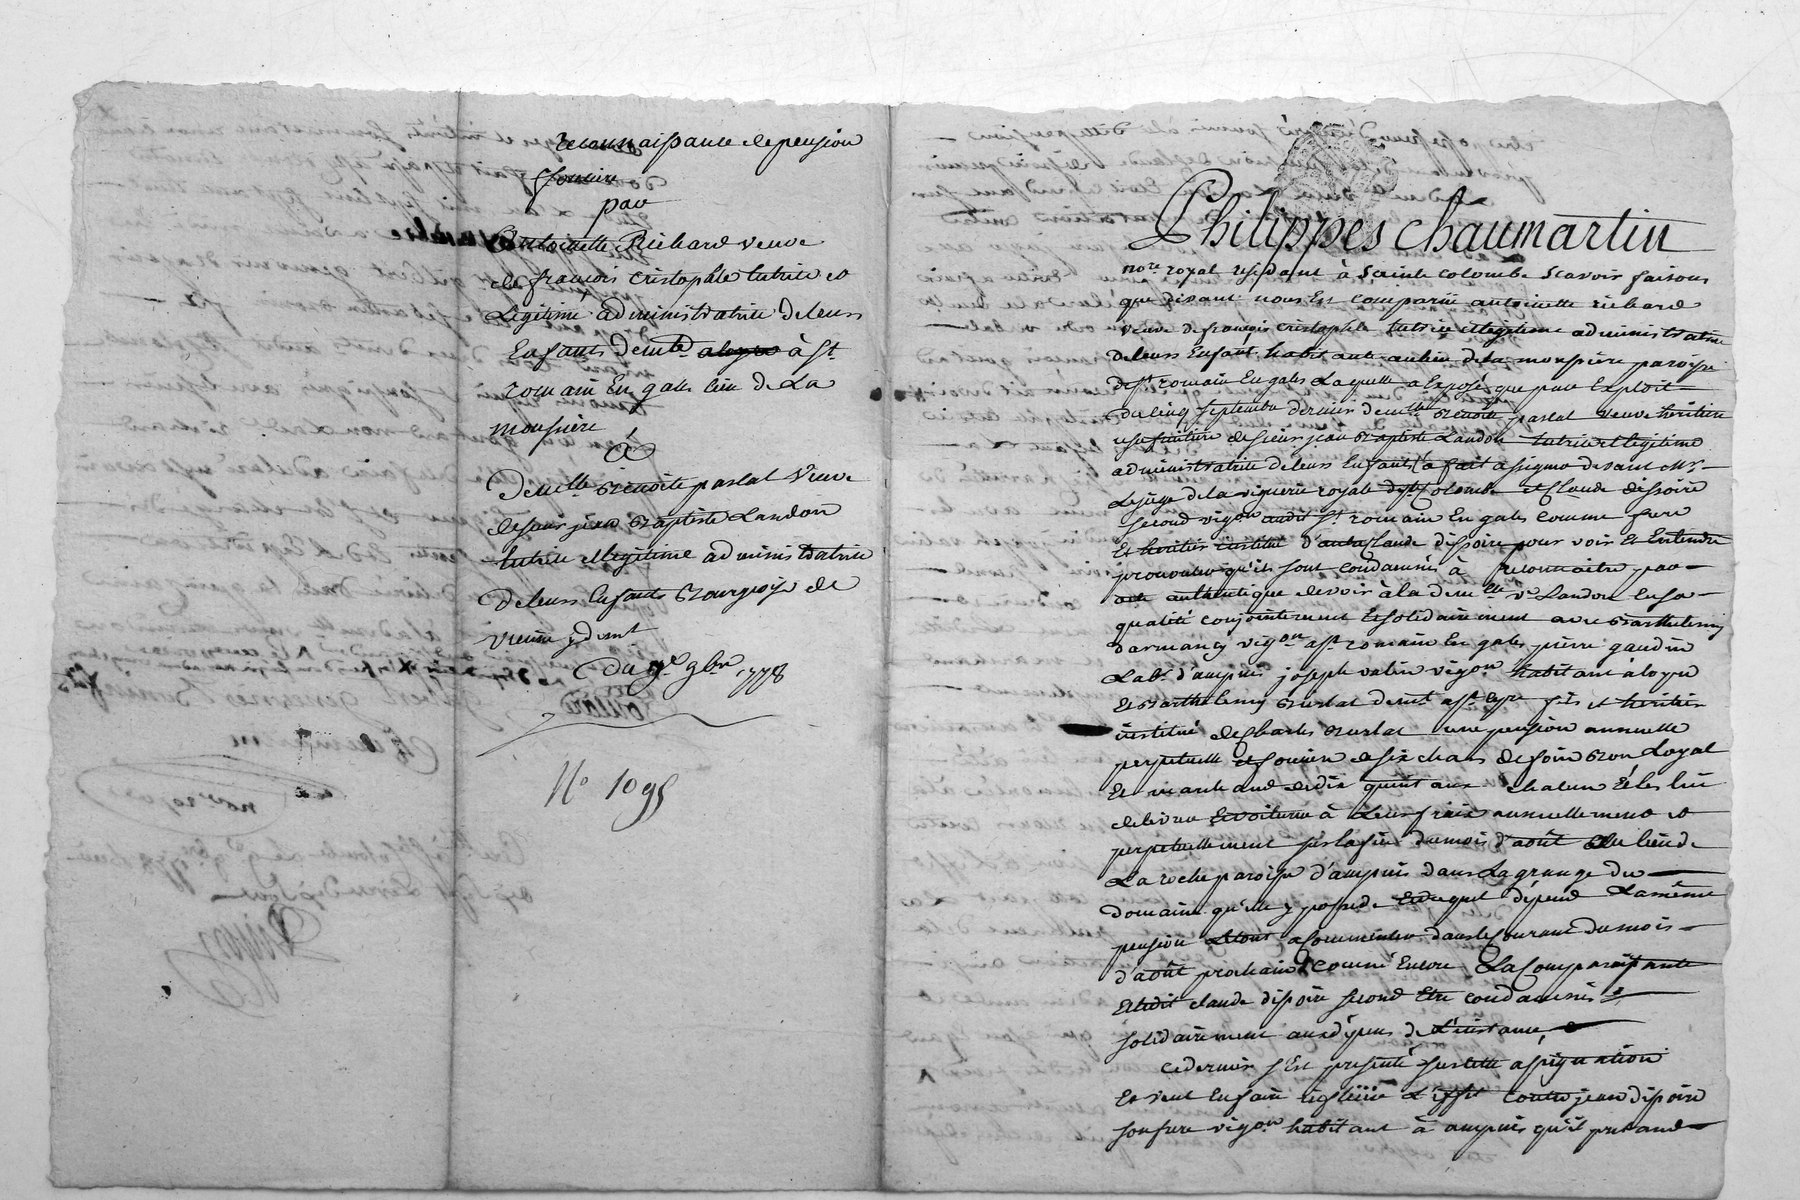 reconnaissance de pension
fonciere
par
Antoinette Richard veuve
de françois Cristophle tutrice et
Legitime administratrice de leurs
Enfants demte à St
romain En gales lieu de La
monssiere
à
Demlle Benoite paslat Veuve
de sieur jean Baptiste Landon
tutrice et legitime administratrice
de leurs Enfants Bourgeoise de
vienne y demt
Du 9bre 1778
No 1095
Philippes Chaumartin
nore royal residant à Sainte Colombe scavoir faisons
que devant nous Est comparüe antoinette richard
veuve de françois Cristophle tutrice et legitime administratrice
de leurs Enfants habitante au lieu de la monssiere paroisse
de st romain En gales Laquelle a Exposé que par Exploit
du cinq septembre dernier demlle Benoite paslat veuve heritiere
usufruitiere de sieur jean Baptiste Landon tutrice et legitime
administratrice de leurs Enfants l'a fait assigner devant Mr
Le juge de la viguerie royale de ste Colombe et Claude dissoire
second vigon audit st romain En gales comme frere
Et heritier institué d'autre Claude dissoire pour voir Et Entendre
prononcer qu'ils sont condamnés à reconnaitre par
acte authentique devoir à la demlle ve Landon En sa
qualité conjointement Et solidairement avec Barthelemy
darmancy vigon a st romain En gales pierre gaudin
Labr d'ampuis joseph valin vigon habitant à loyre
Et Barthelemy Burlat demt a st cyre fils et heritier
institué de Charles Burlat une pension annuelle
perpetuelle et fonciere de six chars de foin Bon Loyal
Et marchand de dix quintaux chacun Et les lui
delivrer Et voiturer à Leurs frais annuellement et
perpetuellement sur la fin du mois d'août au lieu de
La roche paroisse d'ampuis dans La grange du
domaine qu'elle y possede Et duquel dépend La même
pension Et ce à Commencer dans le Courant du mois
d'août prochain comme Encore La Comparaissante
Et ledit claude dissoire second Etre condamnés
solidairement aux dépens de L'instance
Ce dernier s'Est presenté sur cette assignation
Et veut En faire L'effet contre jean dissoire
son frere vigon habitant à ampuis qu'il pretend